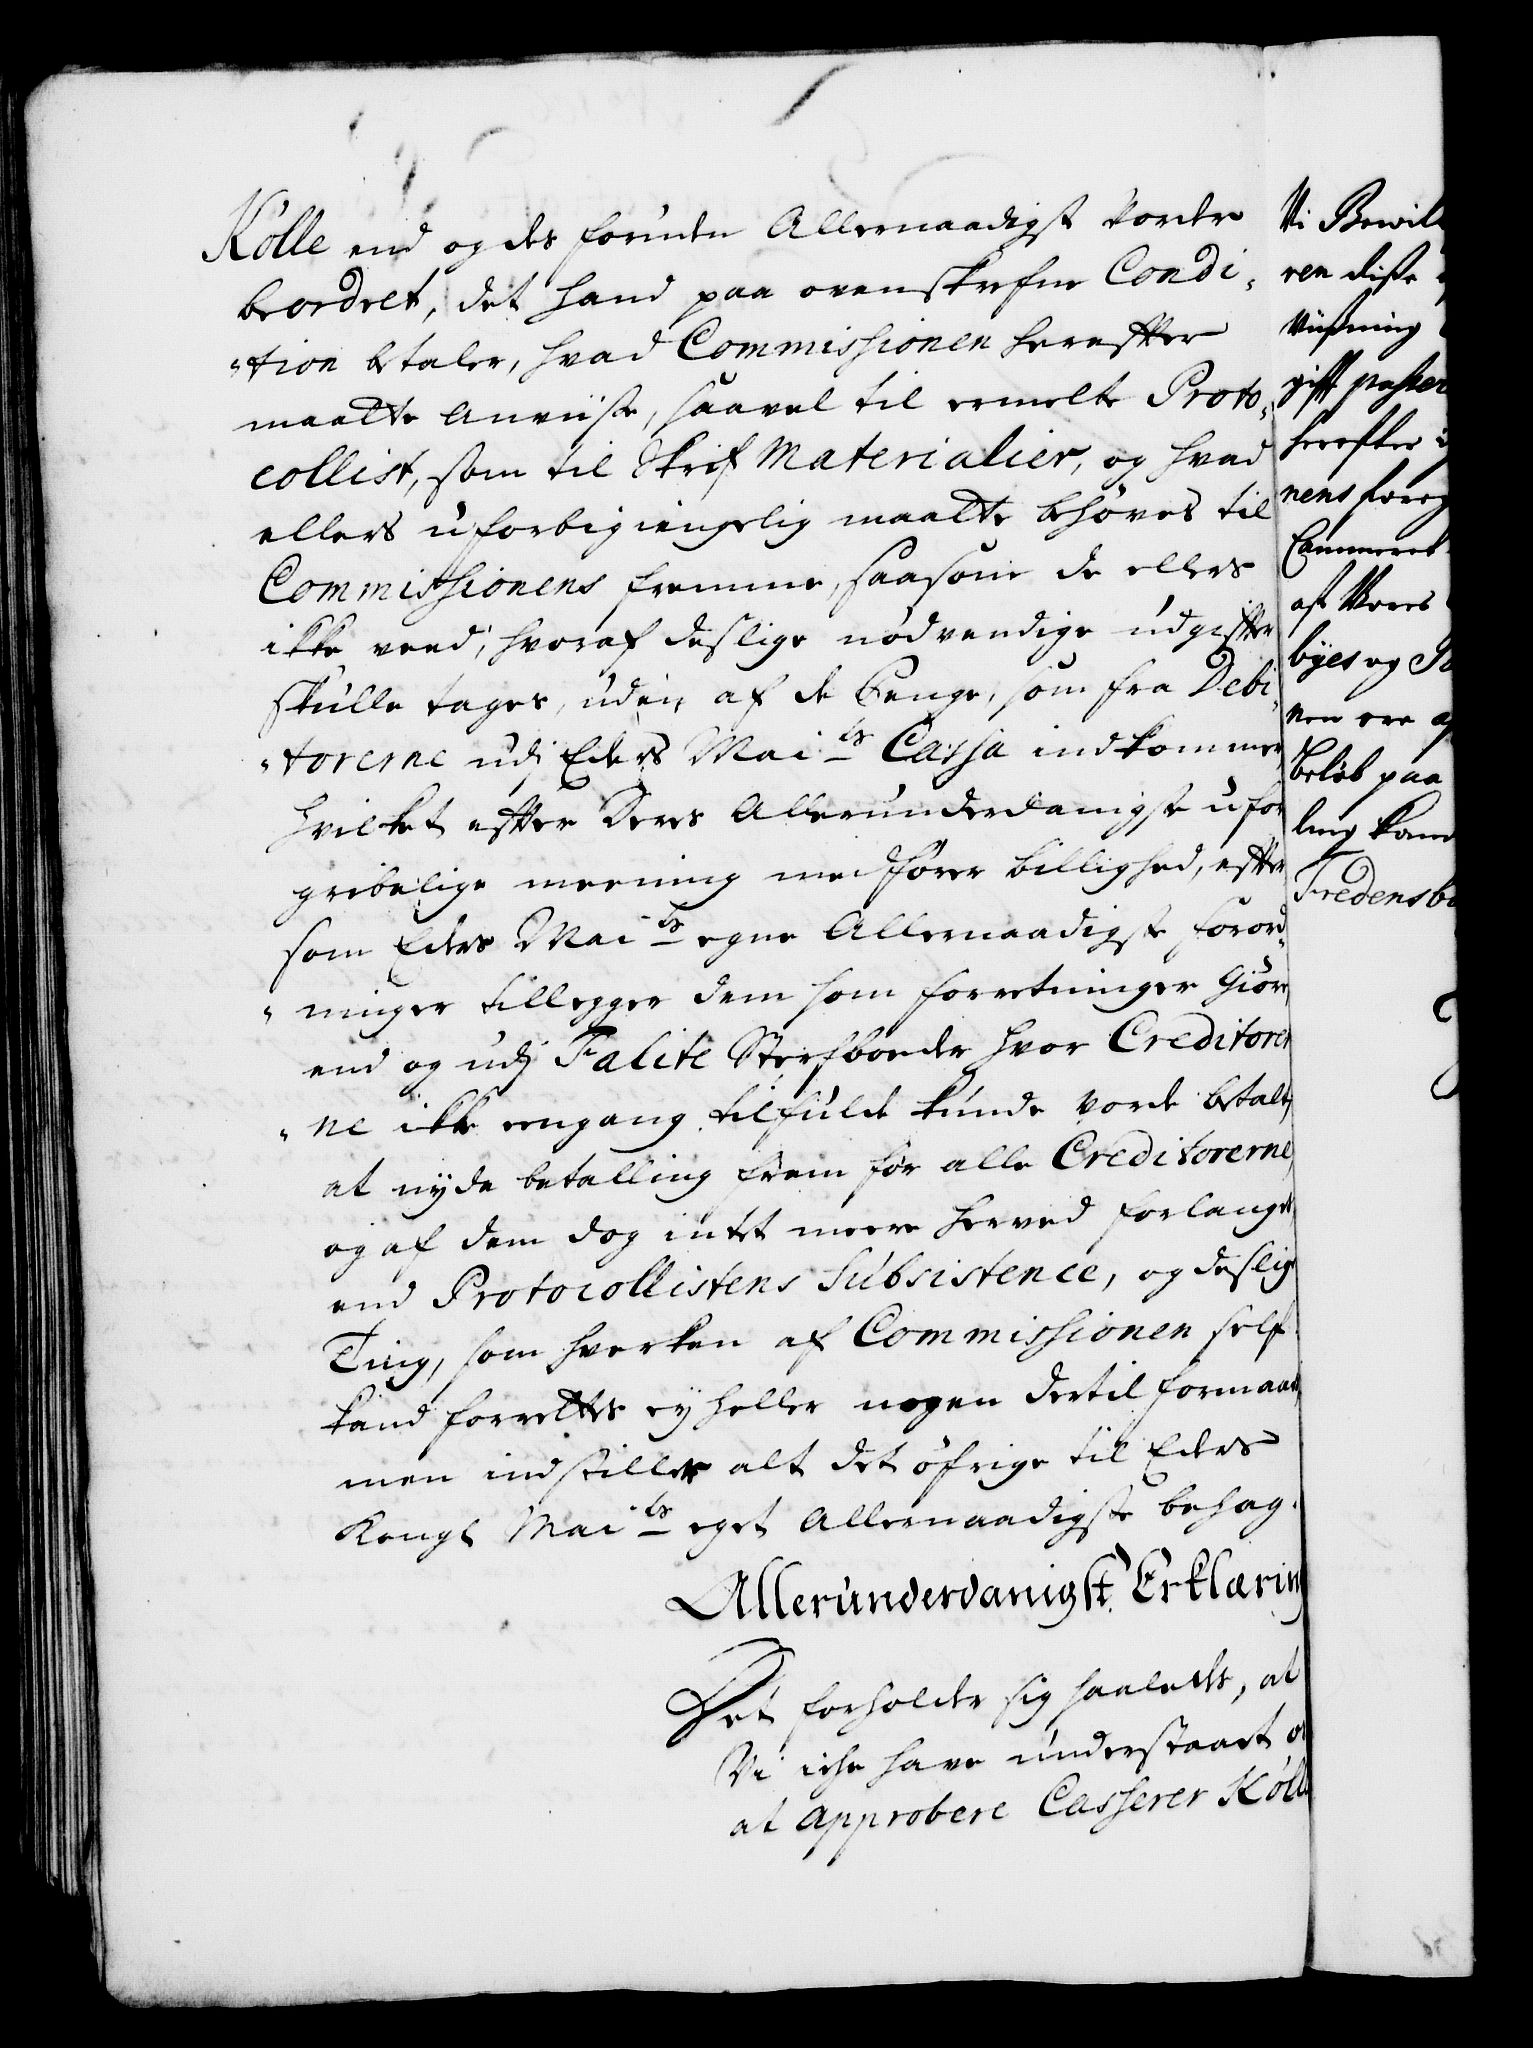 Kølle end og des foruden Allernaadigst vorder
beordret, det hand paa ovenskrefne Condi-
"tion betaler, hvad Commissionen herefter
maatte Anviise, saavel til ermelte Proto-
collist, som til Skrif Materialier, og hvad
ellers uforbigiengelig maatte behøves til
Commissionens fremme, saasom de ellers
ikke veed, hvoraf deslige nødvendige udgifter
skulle tages, uden af de Penge, som fra Debi-
"torerne udj Eders Mai:ts Cassa indkommer
hvilket efter Deres Allerunderdanigst ufor
gribelige meening medfører billighed, efter
som Eders Mai:ts egne Allernaadigste forord-
"ninger tillegger dem som forretninger Giøre,
end og udj Falite Sterfboeder hvor Creditorer
"ne ikke eengang tilfulde kunde vorde betalt,
at nyde betalling frem for alle Creditorerne,
og af dem dog intet meere herved forlanget,
end Protocollistens Subsistence, og deslige
Ting, som hverken af Commissionen self
kand forrettes ey heller nogen dertil formaaes,
men indstiller alt det øfrige til Eders
Kongl Mai:ts eget Allernaadigste behag.
Allerunderdanigst Erklæring
Det forholder sig saaledes, at
Vi iche have understaaet os
at approbere Casserer Kølle
Vi Bewil
ren disse
Viisning
gift passer
herefter
nens foreg
Cammeret
aft Vores
byes og
nen ere
beløb paa
ling kand
Fredensbo